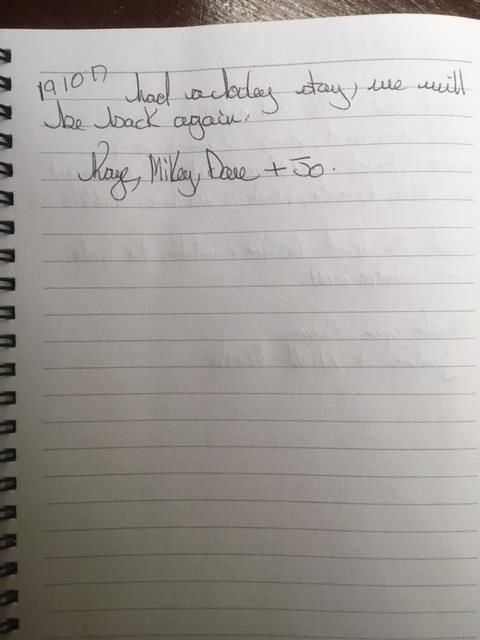 19.10.17 had a lovley stay, we will
be back again.
Mikey, Dave + Jo.